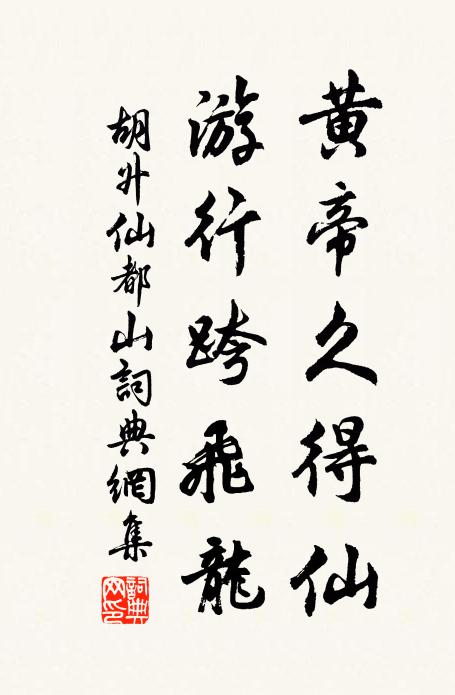 黄帝久得仙
游行跨飛龍
胡升仙都山詞典網集
詞典網印